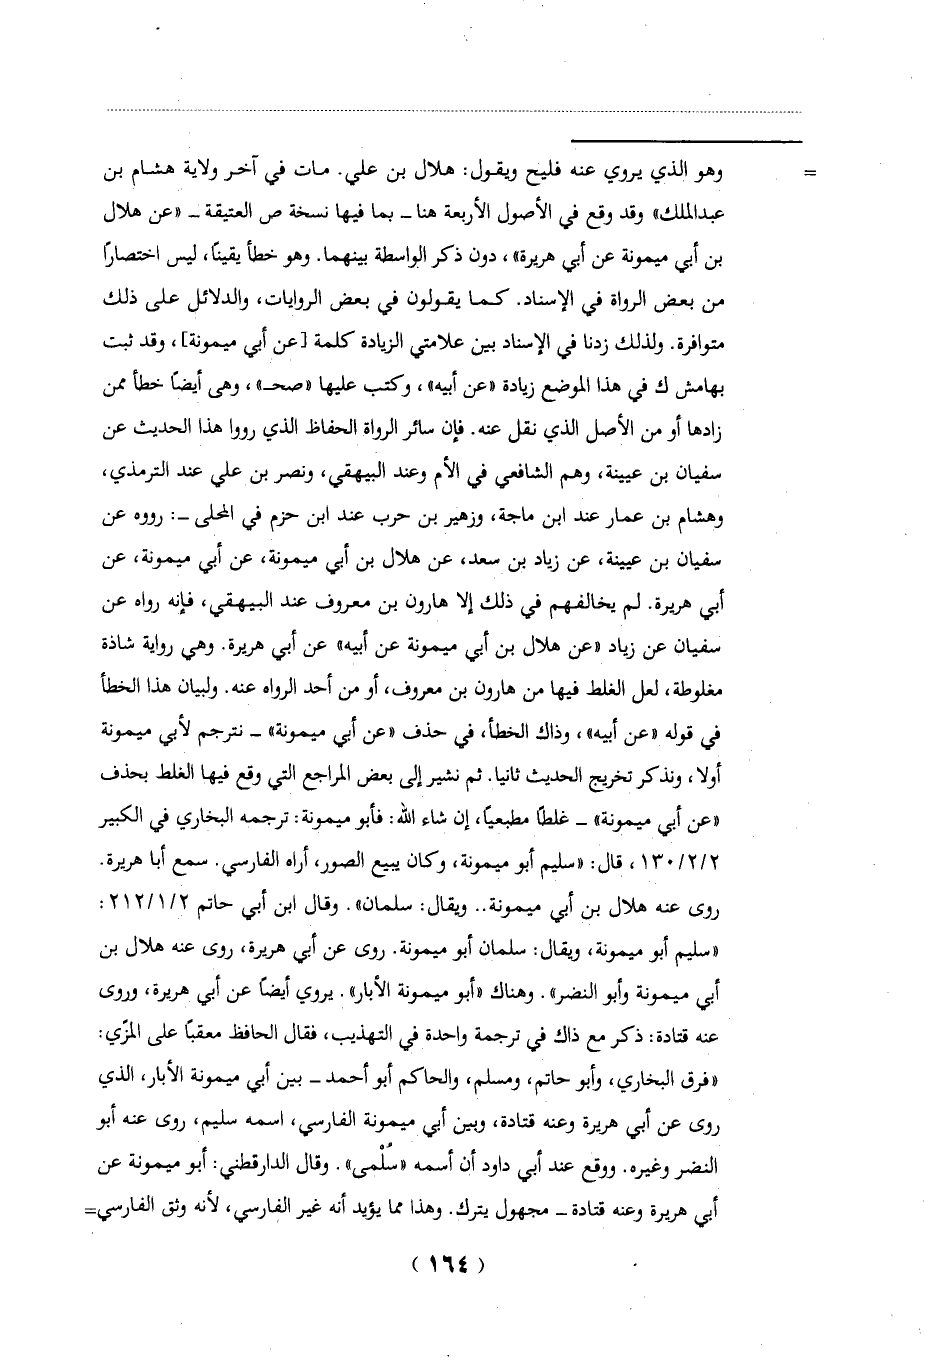 = وهو الذي يروي عنه فليح ويقول: هلال بن علي. مات في آخر ولاية هشام بن
عبدالملك» وقد وقع في الأصول الأربعة هنا ــ بما فيها نسخة ص العتيقة ــ «عن هلال
بن أبي ميمونة عن أبي هريرة»، دون ذكر الواسطة بينهما. وهو خطأ يقيناً، ليس اختصاراً
من بعض الرواة في الإسناد. كما يقولون في بعض الروايات، والدلائل على ذلك
متوافرة. ولذلك زدنا في الإسناد بين علامتي الزيادة كلمة [عن أبي ميمونة]، وقد ثبت
بهامش ك في هذا الموضع زيادة «عن أبيه»، وكتب عليها «صحـ»، وهى أيضاً خطأ ممن
زادها أو من الأصل الذي نقل عنه. فإن سائر الرواة الحفاظ الذي رووا هذا الحديث عن
سفيان بن عيينة، وهم الشافعي في الأم وعند البيهقي، ونصر بن علي عند الترمذي،
وهشام بن عمار عند ابن ماجة، وزهير بن حرب عند ابن حزم في المحلى ــ: رووه عن
سفيان بن عيينة، عن زياد بن سعد، عن هلال بن أبي ميمونة، عن أبي ميمونة، عن
أبي هريرة. لم يخالفهم في ذلك إلا هارون بن معروف عند البيهقي، فإنه رواه عن
سفيان عن زياد «عن هلال بن أبي ميمونة عن أبيه» عن أبي هريرة. وهي رواية شاذة
مغلوطة، لعل الغلط فيها من هارون بن معروف، أو من أحد الرواه عنه. ولبيان هذا الخطأ
في قوله «عن أبيه»، وذاك الخطأ، في حذف «عن أبي ميمونة» ــ نترجم لأبي ميمونة
أولا، ونذكر تخريج الحديث ثانيا. ثم نشير إلى بعض المراجع التي وقع فيها الغلط بحذف
«عن أبي ميمونة» ــ غلطاً مطبعياً، إن شاء الله: فأبو ميمونة: ترجمه البخاري في الكبير
١٣٠/٢/٢، قال: «سليم أبو ميمونة، وكان يبيع الصور، أراه الفارسي. سمع أبا هريرة.
روى عنه هلال بن أبي ميمونة.. ويقال: سلمان». وقال ابن أبي حاتم ٢١٢/١/٢:
«سليم أبو ميمونة، ويقال: سلمان أبو ميمونة. روى عن أبي هريرة، روى عنه هلال بن
أبي ميمونة وأبو النضر». وهناك «أبو ميمونة الأبار». يروي أيضاً عن أبي هريرة، وروى
عنه قتادة: ذكر مع ذاك في ترجمة واحدة في التهذيب، فقال الحافظ معقباً على المزّي:
«فرق البخاري، وأبو حاتم، ومسلم، والحاكم أبو أحمد ــ بين أبي ميمونة الأبار، الذي
روى عن أبي هريرة وعنه قتادة، وبين أبي ميمونة الفارسي، اسمه سليم، روى عنه أبو
النضر وغيره. ووقع عند أبي داود أن أسمه «سُلْمى». وقال الدارقطني: أبو ميمونة عن
أبي هريرة وعنه قتادة ــ مجهول يترك. وهذا مما يؤيد أنه غير الفارسي، لأنه وثق الفارسي=
(١٦٤)